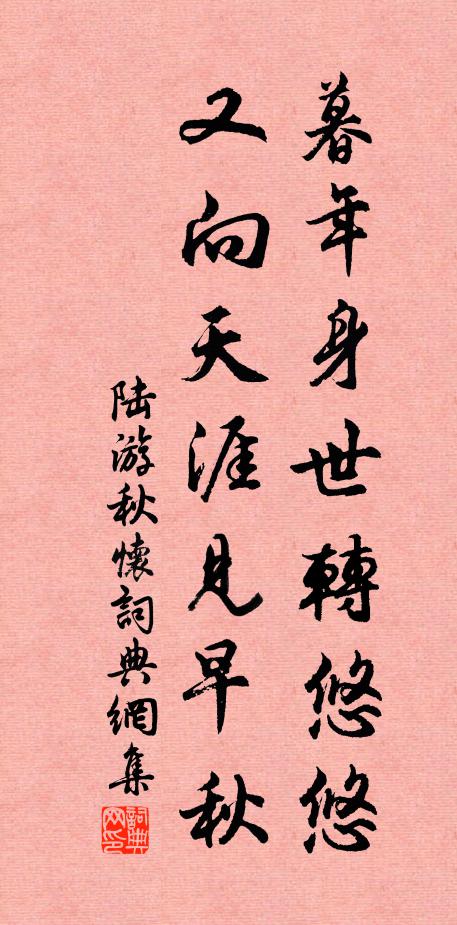 暮年身世轉悠悠
又向天涯見早秋
陆游秋懷詞典網集
詞典
网印